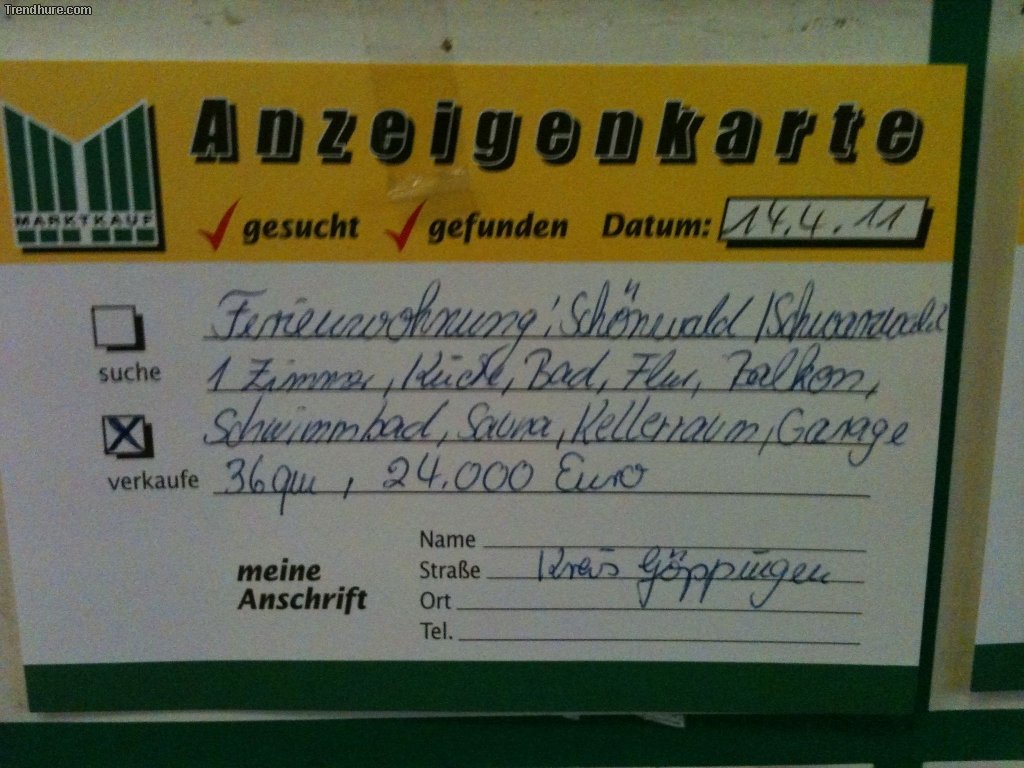 Trendhure.com
Anzeigenkarte
MARKTKAUF
gesucht gefunden Datum: 14.4.11
Ferienwohnung i. Schönwald /Schwarzwald
suche 1 Zimmer, Küche, Bad, Flur, Balkon,
Schwimmbad, Sauna, Kellerraum, Garage
verkaufe 36qm, 24.000 Euro
Name
meine Straße Kreis Göppingen
Anschrift Ort
Tel.